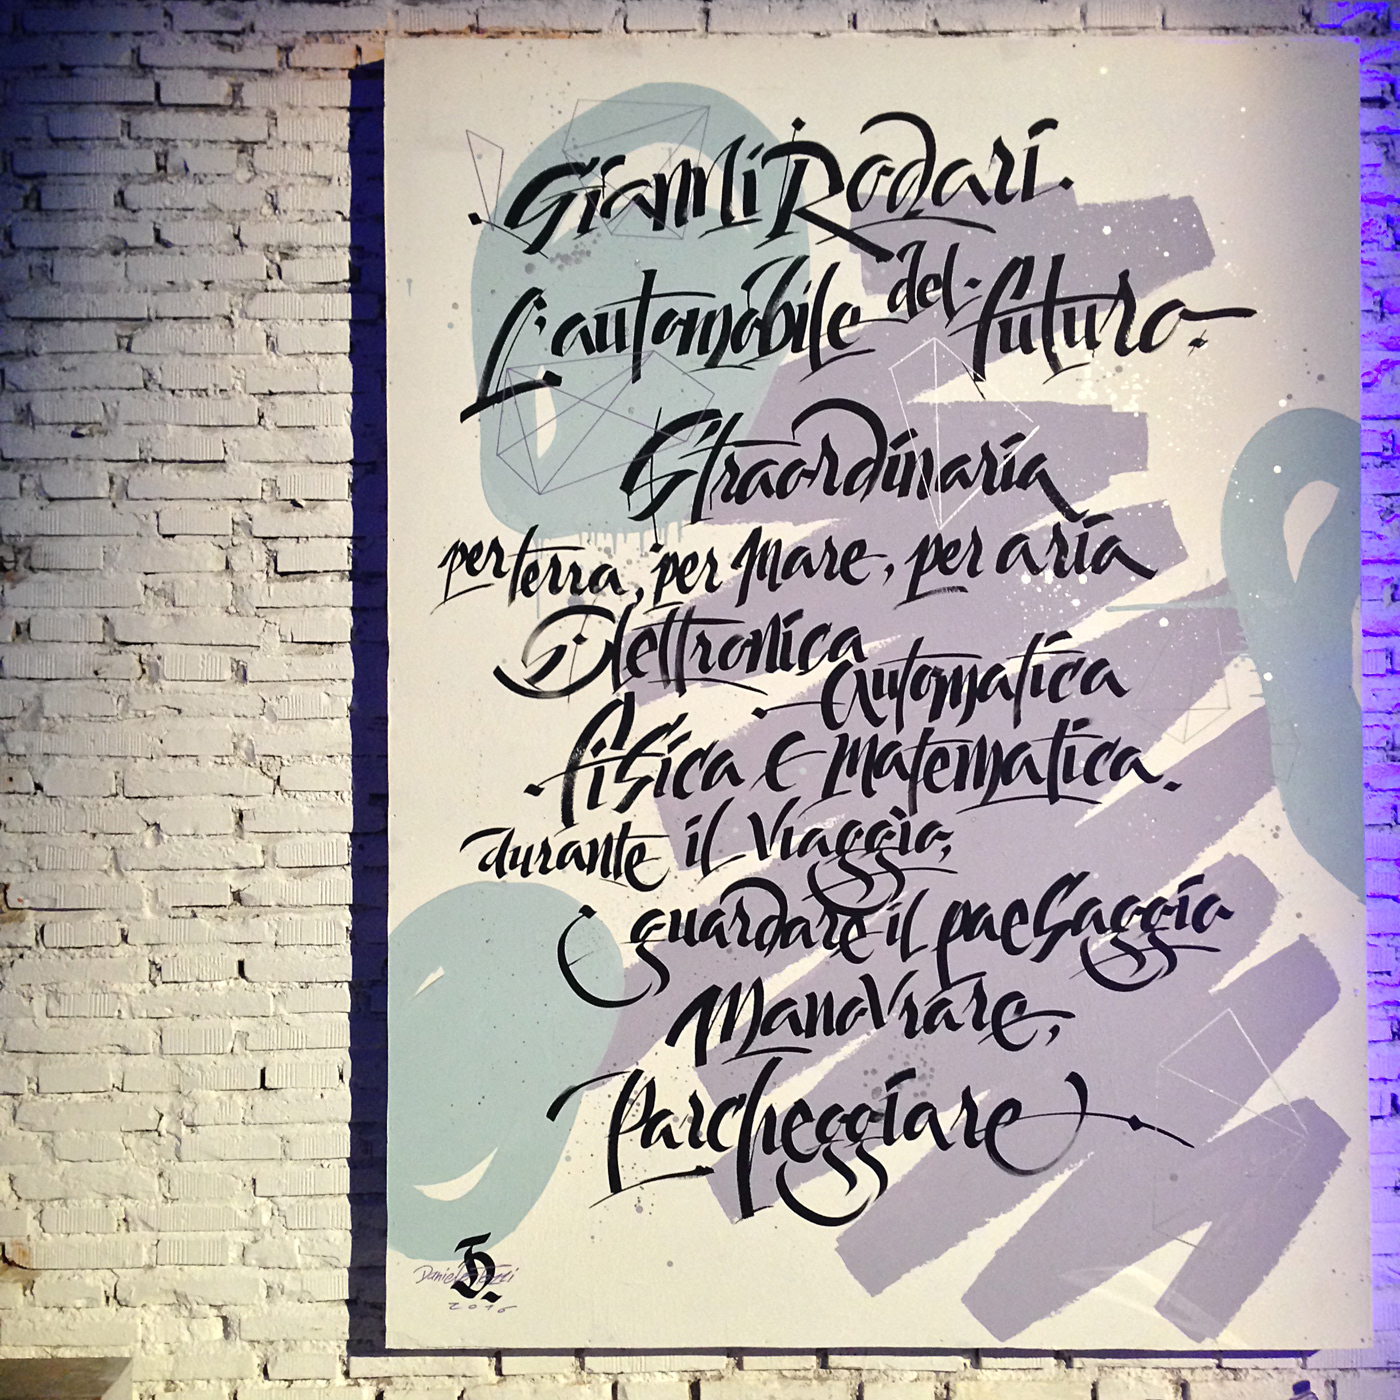 ·Gianni Rodari·
L'automobile del futuro·
Straordinaria
per terra, per mare, per aria
Elettronica
Automatica
·fisica e matematica·
durante il viaggio,
guardare il paesaggio
Manovrare,
Parcheggiare
Daniele Tozzi
2016